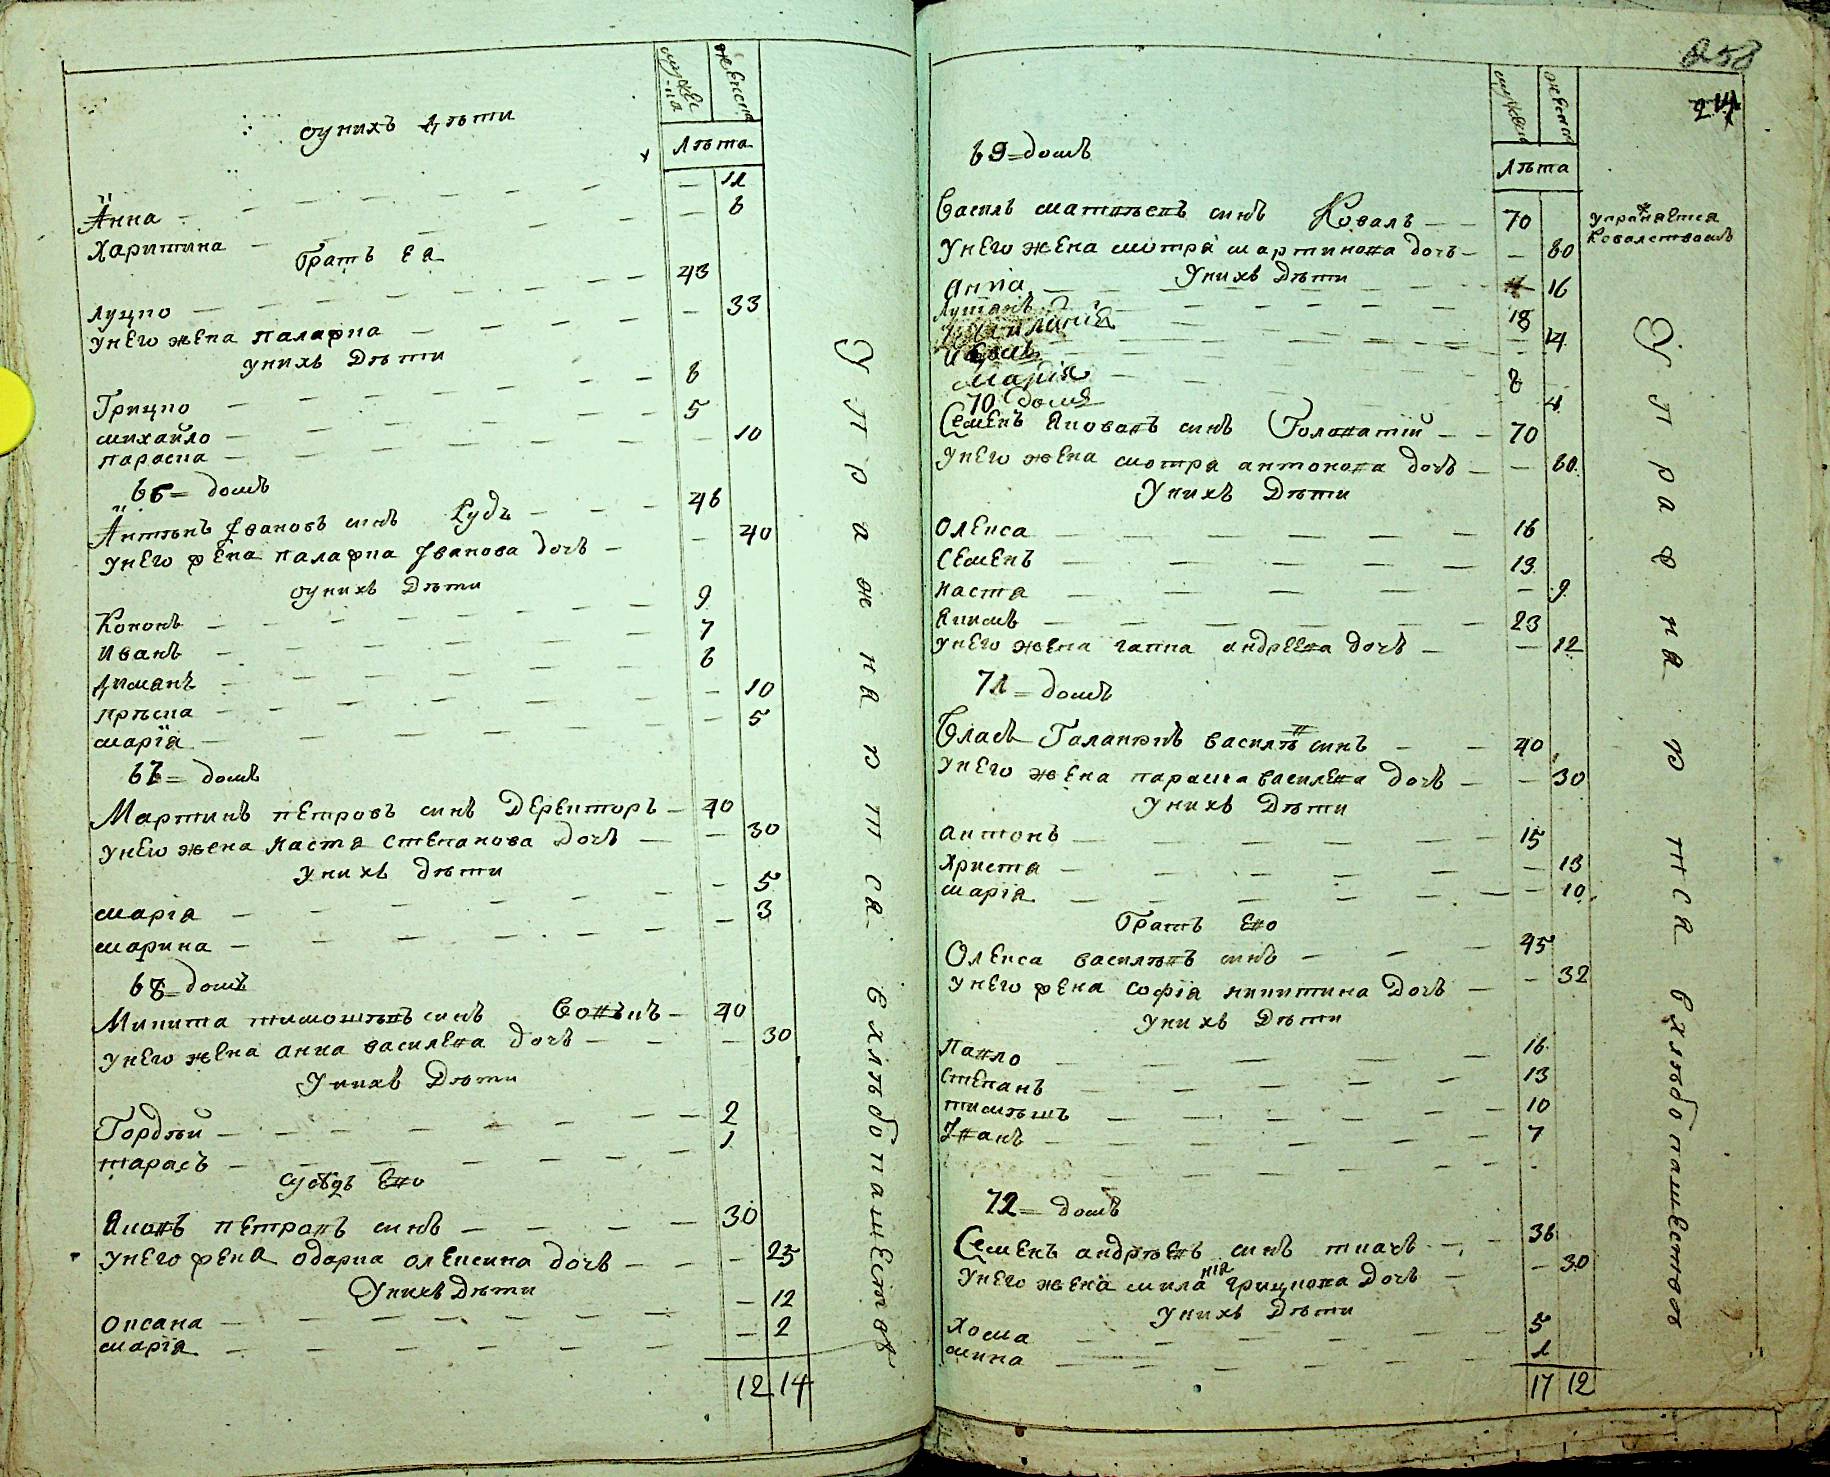 мужеска женска
оу нихъ дѣти
лѣта
Анна — — 11
Харитина — — 6
Братъ ея
Луцко — 43
у него жена Палажка — — 33
у нихъ дѣти
Грицко — 6
Михайло — 5
Параска — — 10
66 = домъ
Антонъ Ивановъ синъ Рудъ — 46
у него жена Палажка Иванова дочъ — — 40
оу нихъ дѣти
Кононъ — 9
Иванъ — 7
Диманъ — 6
Пріска — — 10
Марія — — 5
67 = домъ
Мартинъ Петровъ синъ — 40
у него жена Настя Степанова дочъ — — 30
у нихъ дѣти
Марія — — 5
Марина — — 3
68 = домъ
Микита Тимошѣвъ синъ — 40
у него жена Анна Василева дочъ — — 30
у нихъ дѣти
Гордѣй — 2
Тарасъ — 1
Сусѣдъ его
Яковъ Петровъ синъ — 30
у него жена Одарка Олексина дочъ — — 25
у нихъ дѣти
Оксана — — 12
Марія — — 2
12 14
Упражняятся хлѣбопашествов
258
214
мужеска женска
лѣта
69 = домъ
Василъ Матвѣевъ синъ Ковалъ — 70
упражняется ковалствомъ
у него жена Мотря Мартинова дочъ — — 60
у нихъ дѣти
Анна — — 16
— 18
— — 14
— 8
Марія — — 4
70 домъ
Семенъ Яковавъ синъ Головатій — 70
у него жена Мотря Антонова дочъ — — 60
у нихъ дѣти
Олекса — 16
Семенъ — 13
Настя — — 9
Якимъ — 23
у него жена Гапка Андреева дочъ — — 12
71 = домъ
Власъ Василѣв синъ — 40
у него жена Параска Василева дочъ — — 30
у нихъ дѣти
Антонъ — 15
Христя — — 13
Марія — — 10
Братъ его
Олекса Василѣвъ синъ — 45
у него жена Софія Микитина дочъ — — 32
у нихъ дѣти
Павло — 16
Степанъ — 13
Тимѣшъ — 10
Иванъ — 7
72 = домъ
Семенъ Андрѣевъ синъ Ткачъ — 36
у него жена Миланія Грицкова дочъ — — 30
у нихъ дѣти
Хома — 5
Мина — 1
17 12
Упражняятся хлѣбопашествов